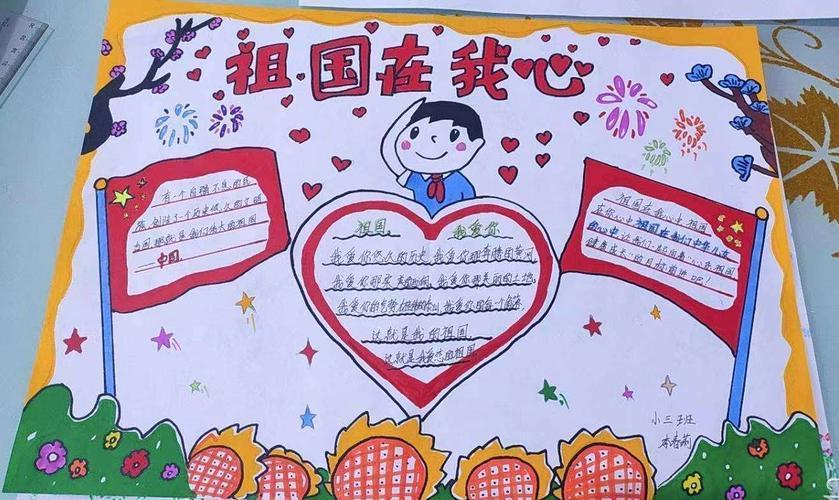 祖国在我心
有一个自强不息的民
族,创造了一个历史悠久的文明
古国,那就是我们伟大的祖国
中国.
祖国 我爱你
我爱你悠久的历史,我爱你那奔腾的黄河
我爱你那 我爱你那美丽的土地,
我爱你的 我爱你的每一个角落,
这就是我的祖国
这就是我爱恋的祖国
祖国在我心中,祖国
在你心中祖国在我们中华儿女
的心中让我们一起向着"心系祖国
健康成长"的目标前进吧!
小三班
李